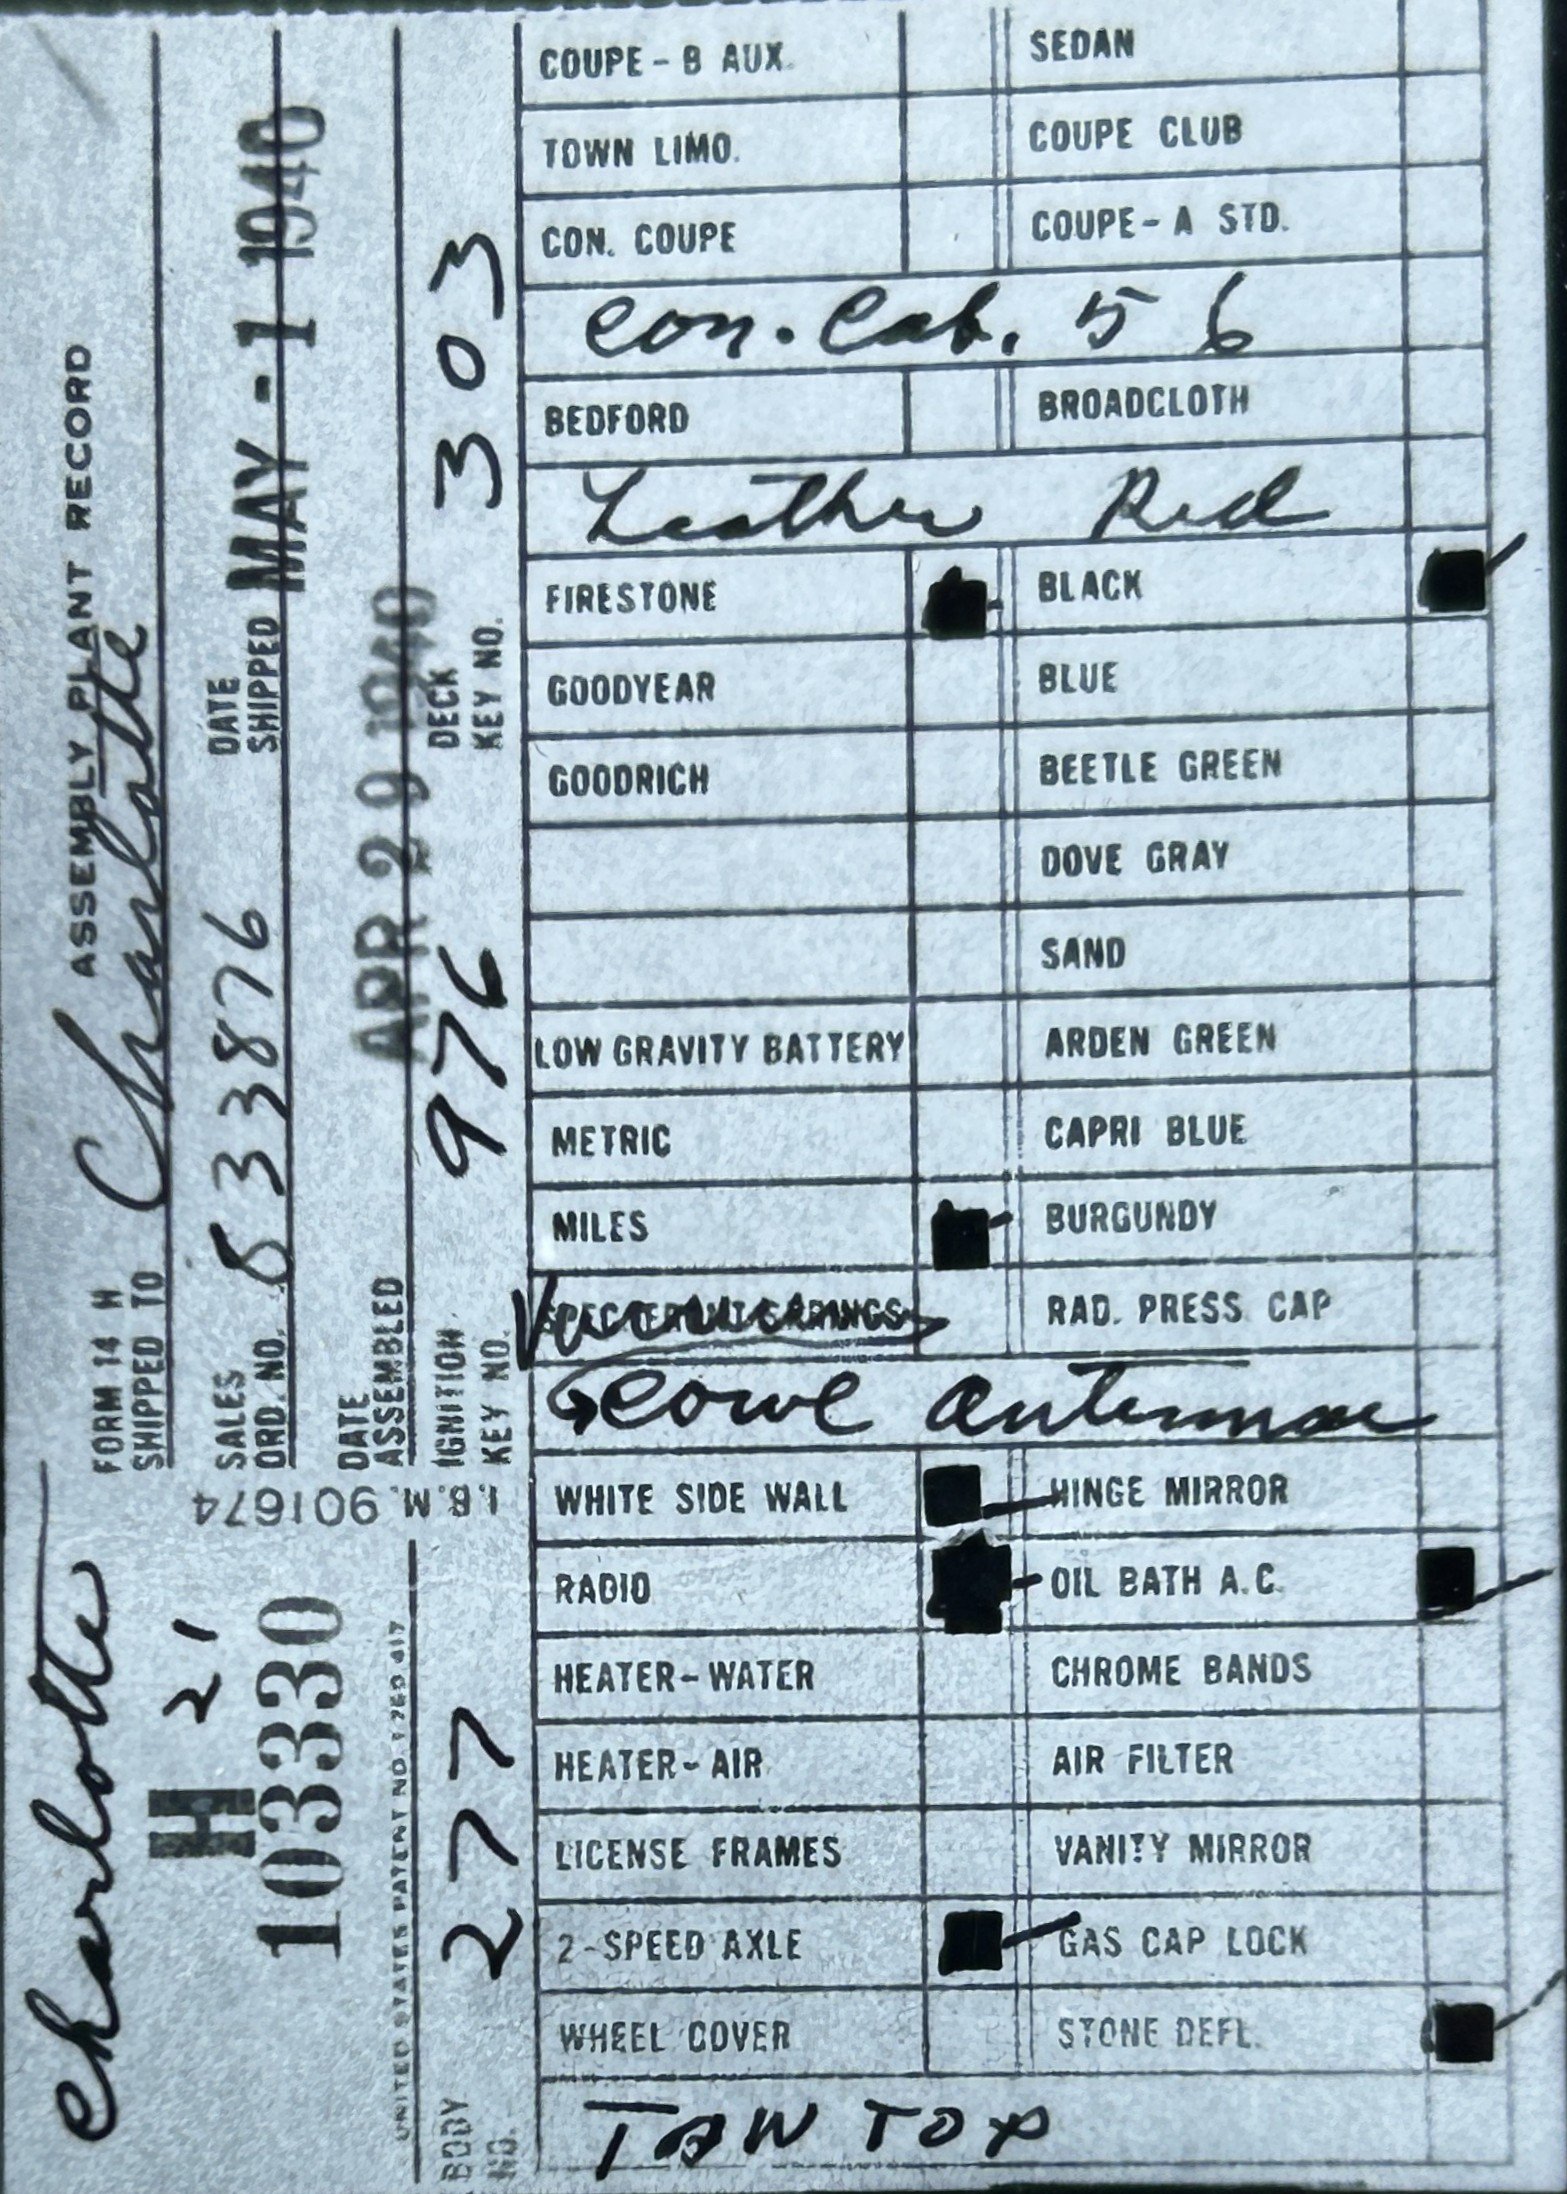 ASSEMBLY PLANT RECORD
FORM 14 H
SHIPPED TO Charlotte
SALES ORD. NO. 833876
DATE SHIPPED MAY - 1 1940
DATE ASSEMBLED APR 29 1940
IGNITION KEY NO. 976
DECK KEY NO. 303
Charlotte
H 21
103330
I.B.M. 901674
UNITED STATES PATENT NO.
BODY NO. 277
COUPE - B AUX. SEDAN
TOWN LIMO. COUPE CLUB
CON. COUPE COUPE - A STD.
Con. Cab. 56
BEDFORD BROADCLOTH
Leather Red
FIRESTONE BLACK
GOODYEAR BLUE
GOODRICH BEETLE GREEN
DOVE GRAY
SAND
LOW GRAVITY BATTERY ARDEN GREEN
METRIC CAPRI BLUE
MILES BURGUNDY
SPRINGS RAD. PRESS CAP
Cowl Antennae
WHITE SIDE WALL HINGE MIRROR
RADIO OIL BATH A.C.
HEATER - WATER CHROME BANDS
HEATER - AIR AIR FILTER
LICENSE FRAMES VANITY MIRROR
2 - SPEED AXLE GAS CAP LOCK
WHEEL COVER STONE DEFL.
TAN TOP